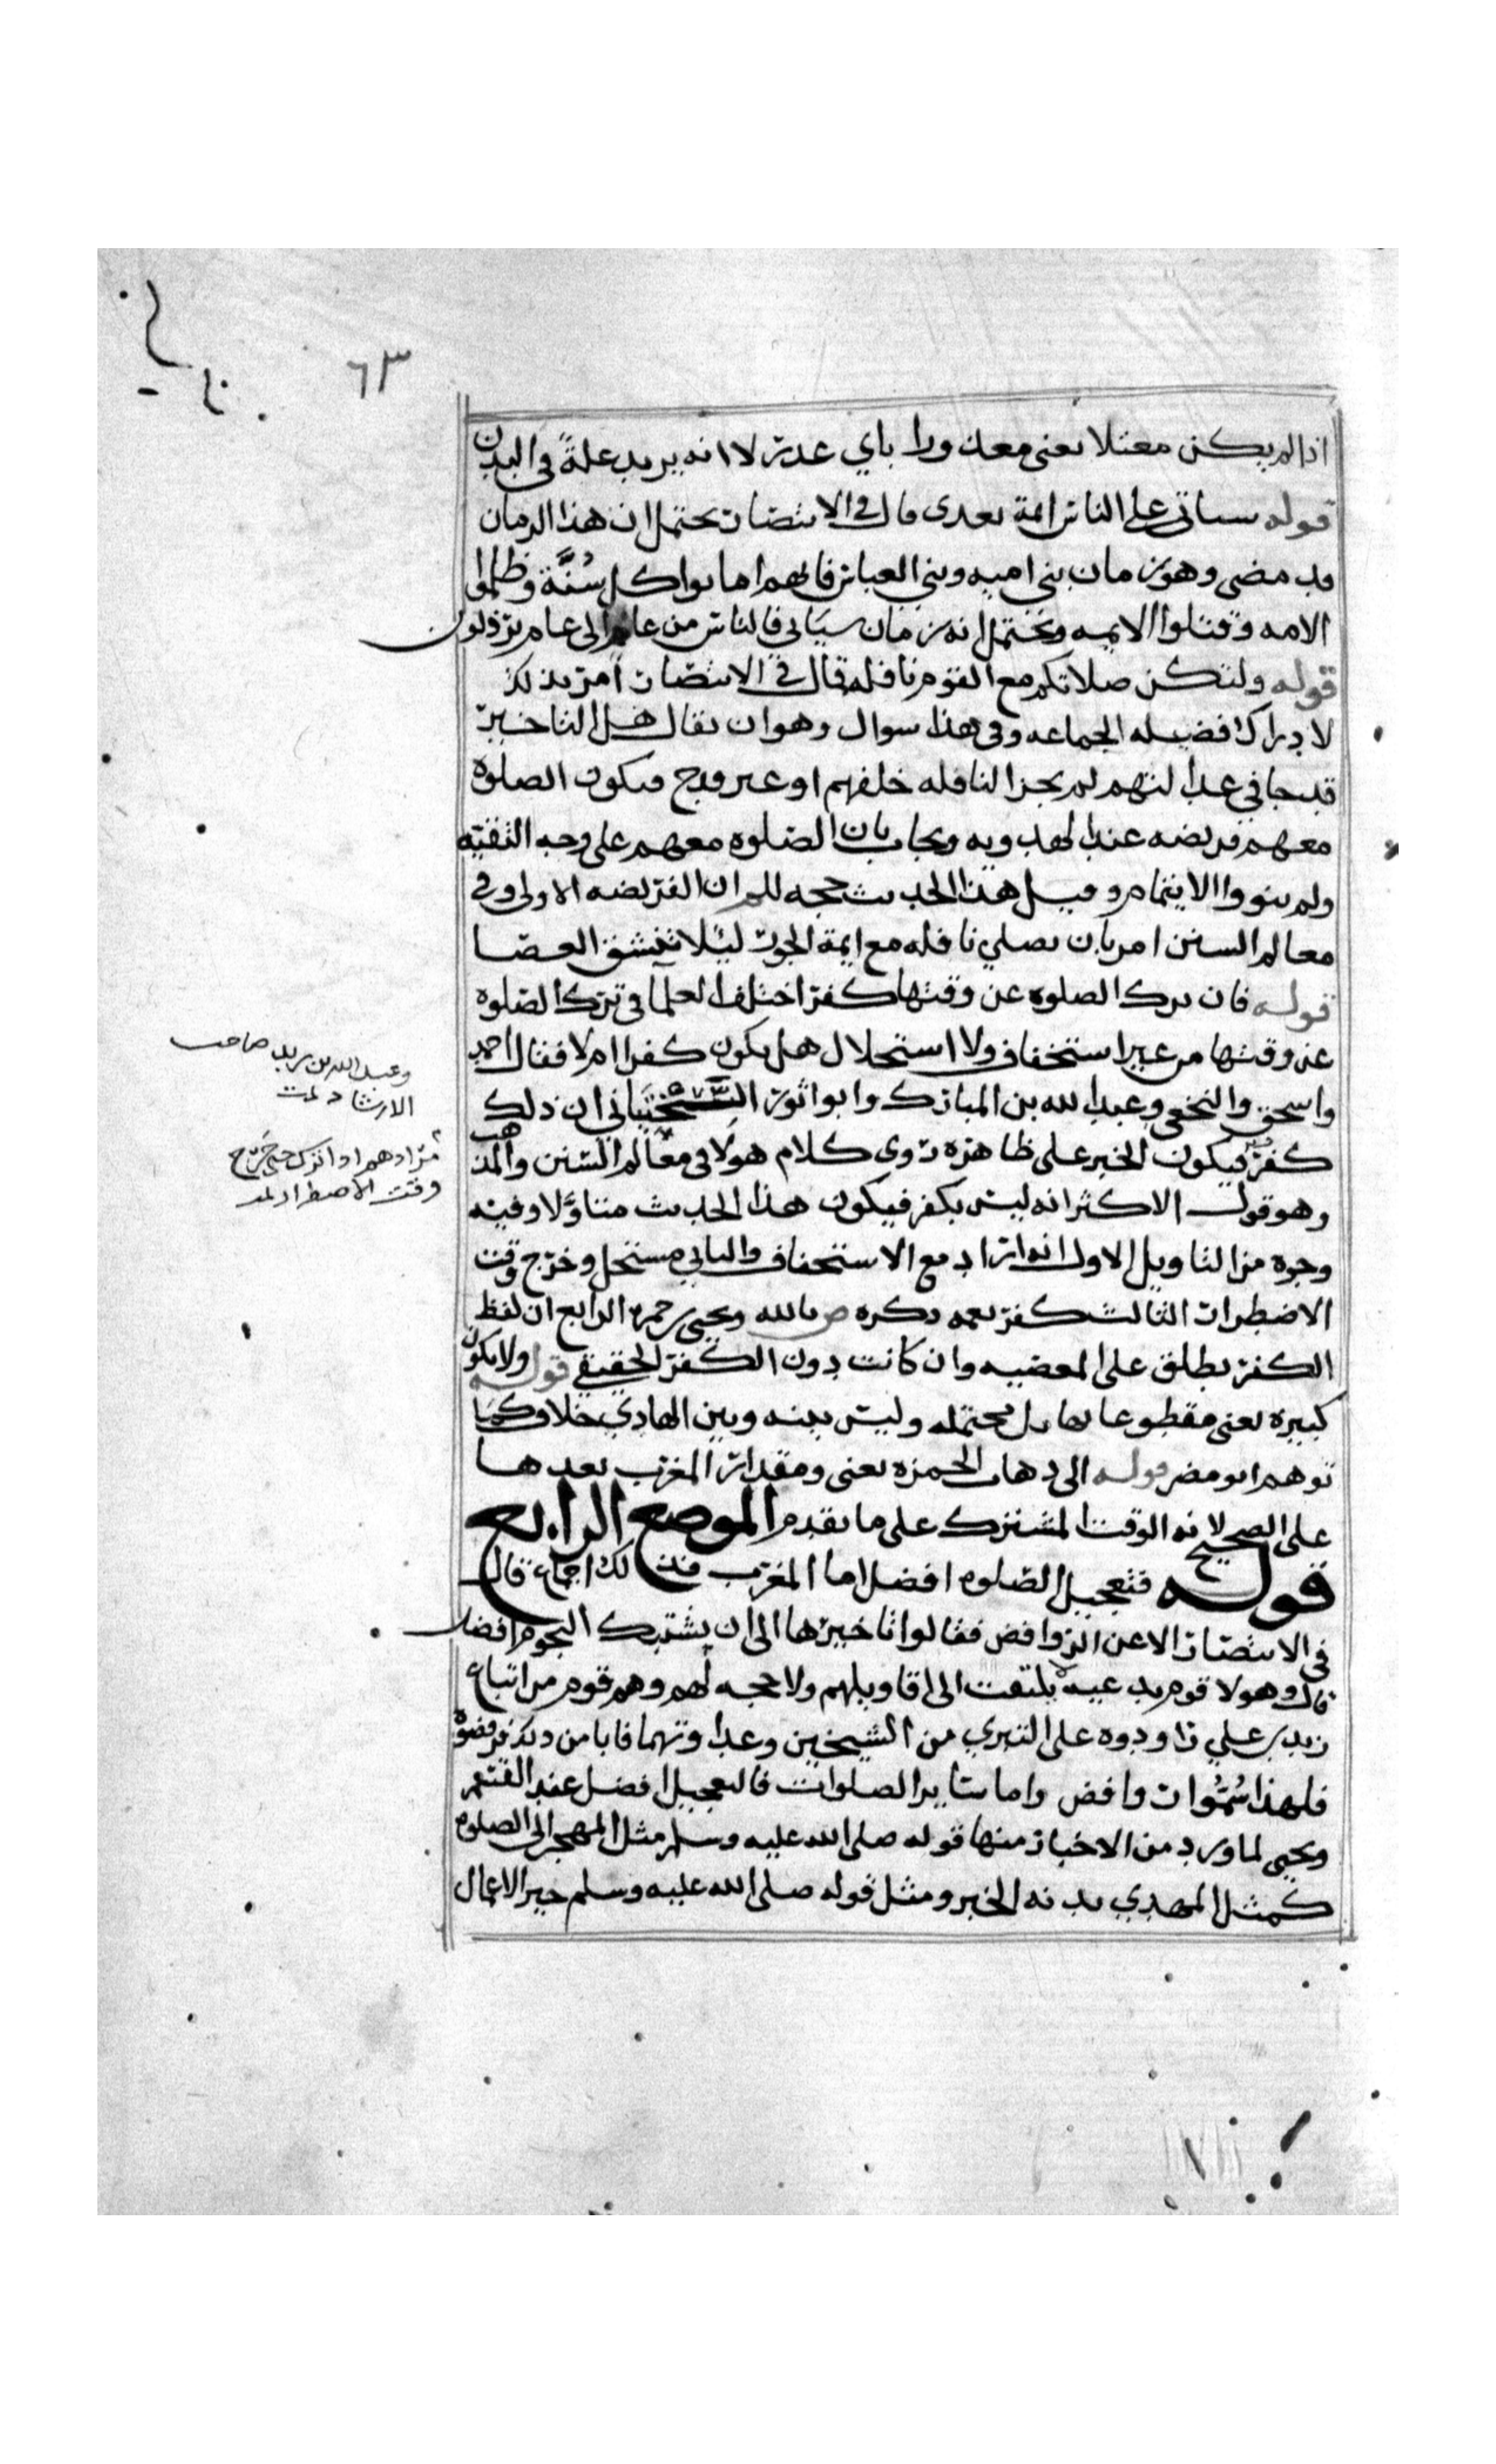 ٦٣
اذا لم يكن معتلا يعنى معذورا باي عذر لا انه يريد علةً في البدن
قوله سياتى على الناس ايمة بعدى قال في الانتصار يحتمل ان هذا الزمان
قد مضى وهو زمان بنى اميه وبني العباس فانهم اماتوا كل سُنَّة وظلموا
الامه وقتلوا الايمه ويحتمل انه زمان سيَاتي فالناس من عام الى عام يرذلون
قوله ولتكن صلاتكم مع القوم نافله قال في الانتصار امر بذلك
لادراك فضيله الجماعه وفي هذا سوال وهو ان يقال هل التاخير
قدحا في عدالتهم لم يجز النافله خلفهم او غير قدح فيكون الصلوة
معهم فريضه عند الهدويه ويجاب بان الصلوه معهم على وجه التقيّه
ولم ينووا الايتمام وقيل هذا الحديث حجه للم ان الفريضه الاولى وفي
معالم السنن امر بان يصلي نافله مع ايمة الجور ليلا تنشق العصا
قوله فان ترك الصلوه عن وقتها كفر اختلف العلما في ترك الصلوه
عن وقتها من غير استخفاف ولا استحلال هل يكون كفرا ام لا فقال احمد
واسحق والنخعي وعبدالله بن المبارك وابو اثور السختياني ان ذلك
كفر فيكون الخبر على ظاهره روى كلام هولا في معالم السنن والمذ
هب
وهو قول الاكثر انه ليس بكفر فيكون هذا الحديث متاوَّلا وفيه
وجوه من التاويل الاول انه اراد مع الاستخفاف والثاني مستحل وخرج وقت
الاضطرار الثالث كفر نعمه ذكره ص بالله ويحيى حمزه الرابع ان لفظ
الكفر يطلق على المعصيه وان كانت دون الكفر الحقيقي قوله ولا يكون
كبيره يعنى مقطوعا بها بل محتمله وليس بينه وبين الهادي خلاف كما
توهم ابو مضر قوله الى ذهاب الحمره يعنى ومقدار المغرب بعدها
على الصحيح لانه الوقت المشترك على ما تقدم الموضع الرابع
قوله فتعجيل الصلوه افضل اما المغرب فذلك اجماع قال
في الانتصار الا عن الروافض فقالوا تاخيرها الى ان يشتبك النجوم افضل
قال وهولا قوم بدعيه لا يلتفت الى اقاويلهم ولا حجه لهم وهم قوم من اتباع
زيد بن علي راودوه على التبري من الشيخين وعداوتهما فابا من ذلك فرفضوه
فلهذا سُمُّوا روافض واما سائر الصلوات فالتعجيل افضل عند القسم
ويحيى لما ورد من الاخبار منها قوله صلى الله عليه وسلم مثل المهجر الى الصلوه
كمثل المهدي بدنه الخبر ومثل قوله صلى الله عليه وسلم خير الاعمال
وعبدالله بن زيد صاحب
الارشاد تمت
مرادهم اذا ترك حتى خَرج
وقت الاضطرار تمت